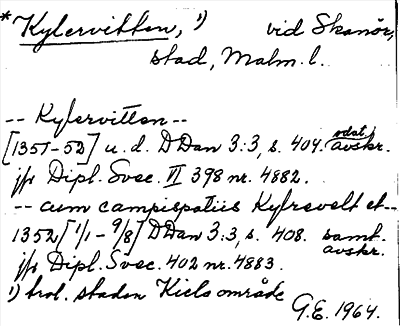 * Kylervitten, 1) vid Skanör,
stad, Malm. l.
-- Kylervitten --
[1351-52] u. d. DDan 3:3, s. 404. odat. avskr.
jfr Dipl. Svec. VI 398 nr. 4882.
-- cum campispatiis Kylrevelt et --
1352 [1/1 - 9/8] DDan 3:3, s. 408. samt. avskr.
jfr Dipl. Svec. 402 nr. 4883.
1) trol. staden Kiels område
G.E. 1964.